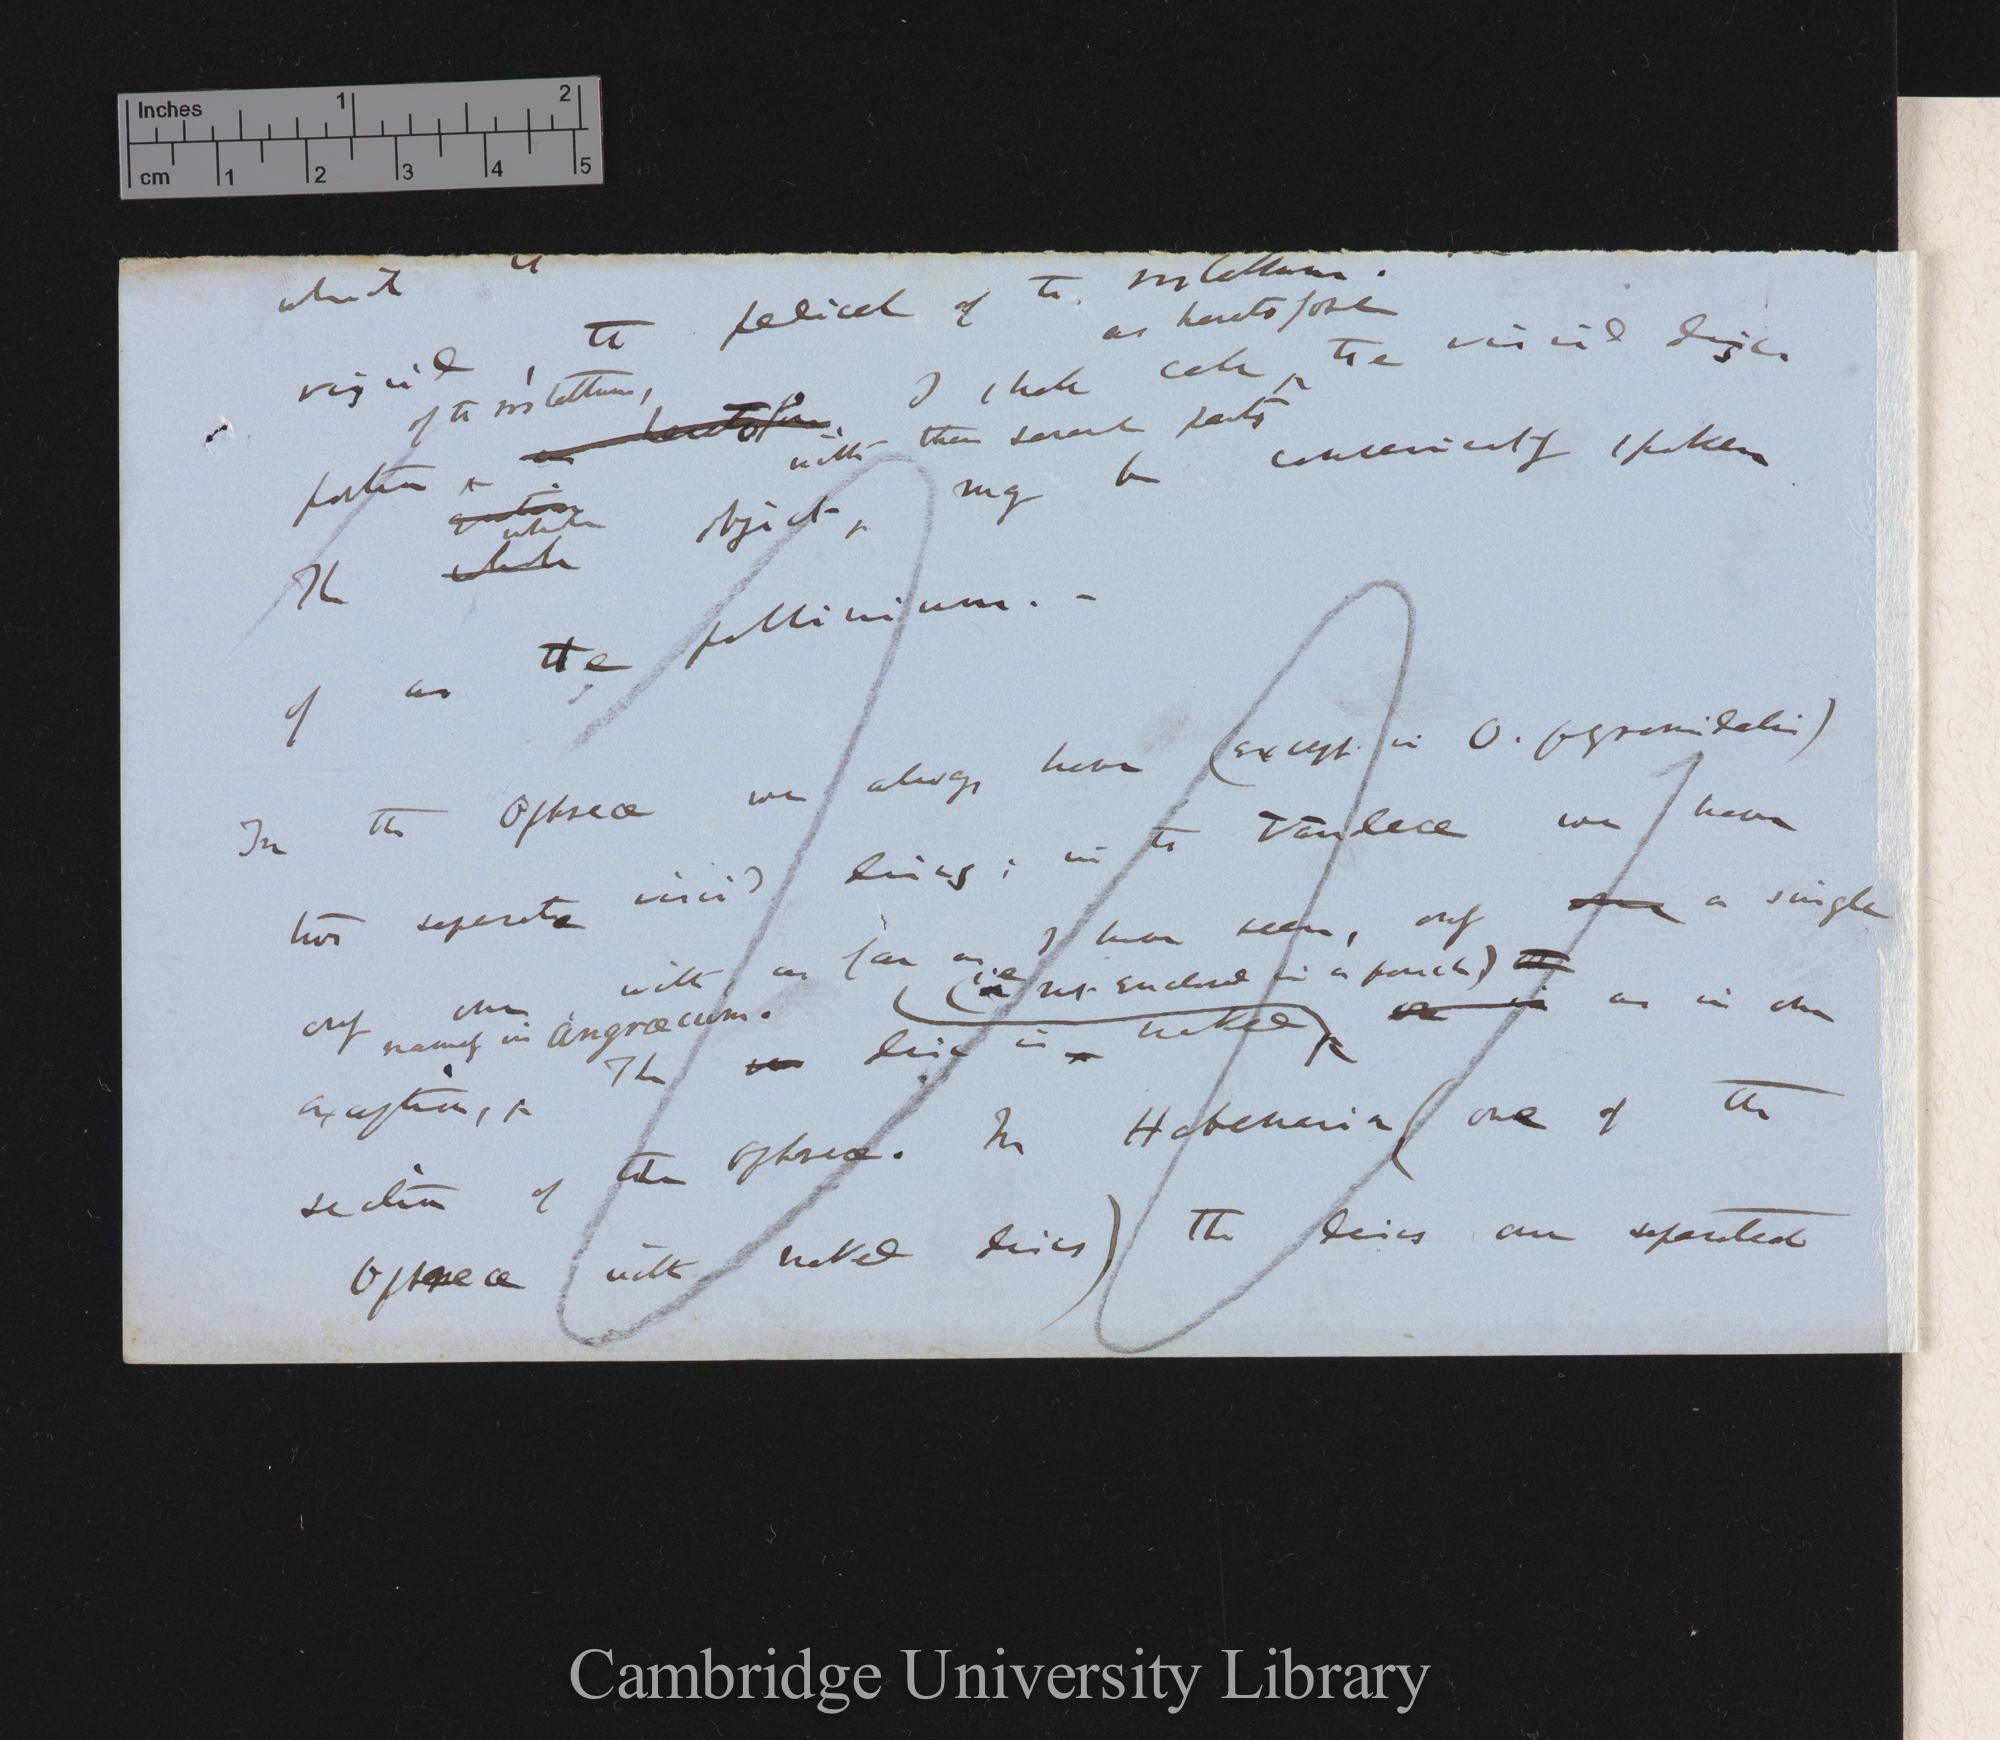 Inches 1 2
cm 1 2 3 4 5
which is
rostellum.
as heretofore
viscid, the pedicel of the
of the rostellum,
portion as heretofore. I shall call the viscid disc
with their several parts
The whole object, may be conveniently spoken
whole
of as the pollinium. -
In the Ophreæ we always have (except in O. pyramidalis)
two separate viscid discs; in the Vandeæ we have
only one with, as far as I have seen, only one a single
namely in Angræcum.
(i.e. not enclosed in a pouch)
exception, The disc is naked, as in one
section of the Ophreæ. In Habenaria (one of the
Ophreæ with naked discs) the discs are separated
Cambridge University Library